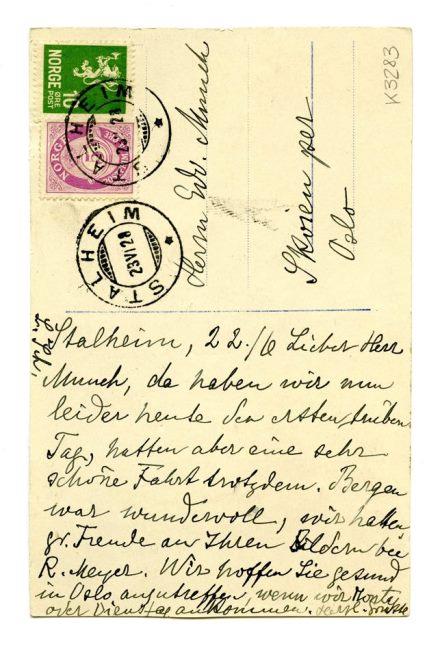 K3283
NORGE
10
ØRE
POST
NORGE
STALHEIM
23 VI 28
STALHEIM
23 VI 28
Herrn Edv. Munch
Skøien per
Oslo
Stalheim, 22./6 Lieber Herr
Munch, da haben wir nun
leider heute den ersten trüben
Tag, hatten aber eine sehr
schöne Fahrt trotzdem. Bergen
war wundervoll, wir hatten
gr. Freude an Ihren Bildern bei
R. Meyer. Wir hoffen Sie gesund
in Oslo anzutreffen, wenn wir Montg
oder Dienstag ankommen. herzl. Grüsse